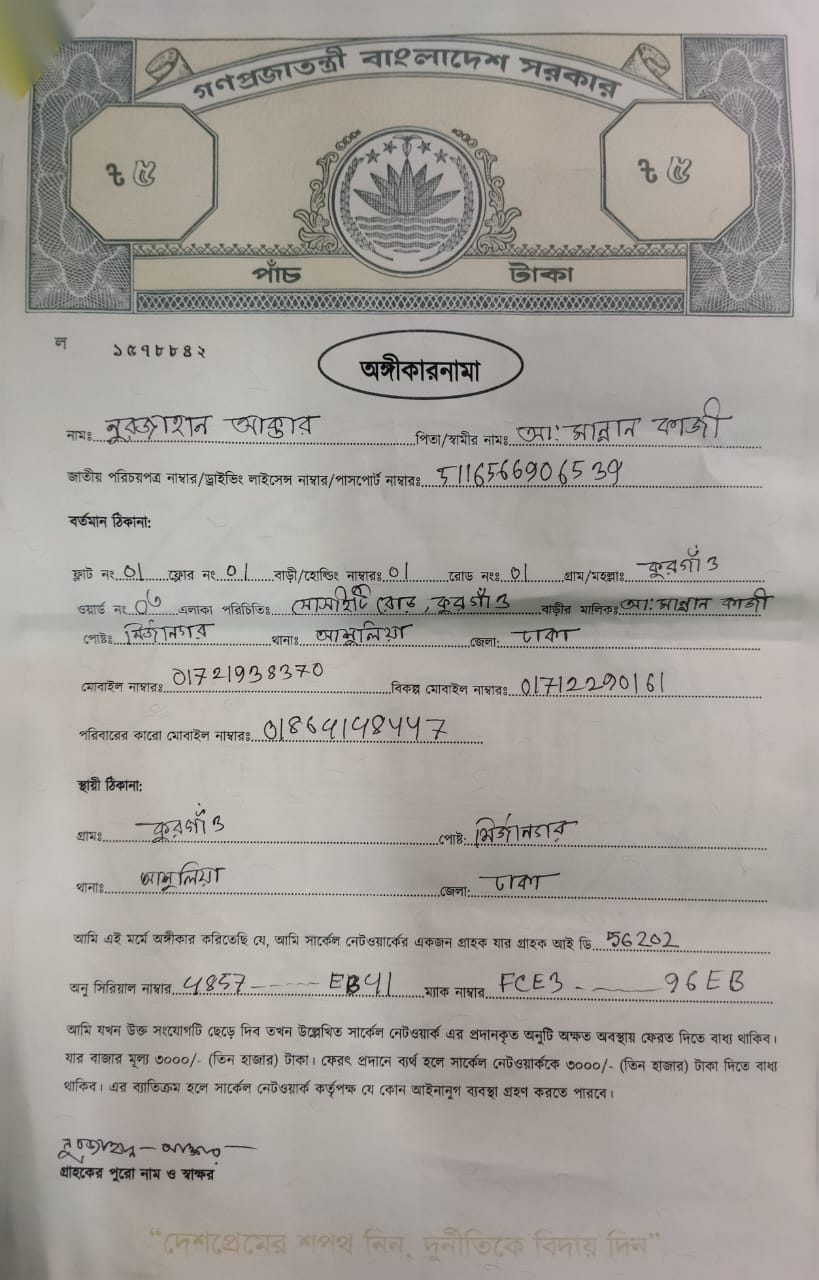 গণপ্রজাতন্ত্রী বাংলাদেশ সরকার
৳ ৫ ৳ ৫
পাঁচ টাকা
ল ১৫৭৮৮৪২
অঙ্গীকারনামা
নামঃ নুরজাহান আক্তার পিতা/স্বামীর নামঃ আঃ মান্নান কাজী
জাতীয় পরিচয়পত্র নাম্বার/ড্রাইভিং লাইসেন্স নাম্বার/পাসপোর্ট নাম্বারঃ 5116566906539
বর্তমান ঠিকানা:
ফ্লাট নং 01 ফ্লোর নং 01 বাড়ী/হোল্ডিং নাম্বারঃ 01 রোড নংঃ 01 গ্রাম/মহল্লাঃ কুরগাঁও
ওয়ার্ড নং এলাকা পরিচিতিঃ সোসাইটি রোড, কুরগাঁও বাড়ীর মালিকঃ আঃ মান্নান কাজী
পোষ্টঃ মির্জানগর থানাঃ আশুলিয়া জেলা: ঢাকা
মোবাইল নাম্বারঃ 01721938370 বিকল্প মোবাইল নাম্বারঃ 01712290161
পরিবারের কারো মোবাইল নাম্বারঃ 01864198447
স্থায়ী ঠিকানা:
গ্রামঃ কুরগাঁও পোষ্ট: মির্জানগর
থানাঃ আশুলিয়া জেলা: ঢাকা
আমি এই মর্মে অঙ্গীকার করিতেছি যে, আমি সার্কেল নেটওয়ার্কের একজন গ্রাহক যার গ্রাহক আই ডি 56202
অনু সিরিয়াল নাম্বার 4857 ------ EB41 ম্যাক নাম্বার FCE3 - ——— 96EB
আমি যখন উক্ত সংযোগটি ছেড়ে দিব তখন উল্লেখিত সার্কেল নেটওয়ার্ক এর প্রদানকৃত অনুটি অক্ষত অবস্থায় ফেরত দিতে বাধ্য থাকিব।
যার বাজার মূল্য ৩০০০/- (তিন হাজার) টাকা। ফেরৎ প্রদানে ব্যর্থ হলে সার্কেল নেটওয়ার্ককে ৩০০০/- (তিন হাজার) টাকা দিতে বাধ্য
থাকিব। এর ব্যাতিক্রম হলে সার্কেল নেটওয়ার্ক কর্তৃপক্ষ যে কোন আইনানুগ ব্যবস্থা গ্রহণ করতে পারবে।
গ্রাহকের পুরো নাম ও স্বাক্ষর
“দেশপ্রেমের শপথ নিন, দুর্নীতিকে বিদায় দিন”